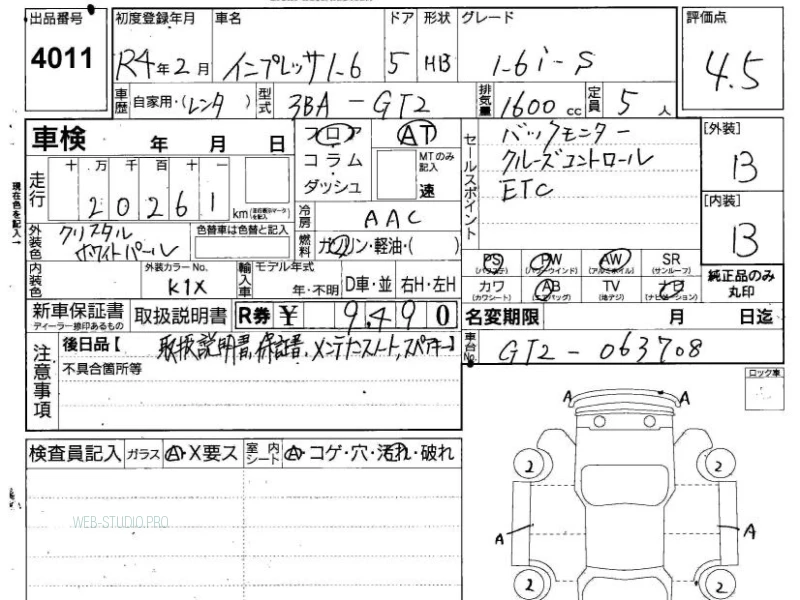 出品番号 初度登録年月 車名 ドア 形状 グレード 評価点
4011 R4年2月 インプレッサ1.6 5 HB 1.6i-S 4.5
車歴 自家用・(レンタ ) 型式 3BA-GT2 排気量 1600cc 定員 5人
車検 年 月 日 フロア AT セールスポイント バックモニター [外装]
コラム MTのみ記入 クルーズコントロール B
ダッシュ 速 ETC
走行 十 万 千 百 十 一
20261 km(走行表示マークを記入) 冷房 AAC [内装]
現在色を記入→
外装色 クリスタルホワイトパール 色替車は色替と記入 燃料 ガソリン・軽油・( ) B
PS (パワステ) PW (パワーウインド) AW (アルミホイル) SR (サンルーフ) 純正品のみ丸印
内装色 外装カラーNo. K1X 輸入車 モデル年式 年・不明 D車・並 右H・左H カワ (カワシート) AB (エアバッグ) TV (地デジ) ナビ (ナビゲーション)
新車保証書 ディーラー捺印あるもの 取扱説明書 R券 ¥ 9,490 名変期限 月 日迄
注意事項 後日品【 取扱説明書,保証書,メンテナンスノート,スペアキー】 車台No. GT2-063708
不具合箇所等 ロック車
A A
検査員記入 ガラス A・X要ス 室内シート A・コゲ・穴・汚れ・破れ
2 2
WEB-STUDIO.PRO
A A
2 2